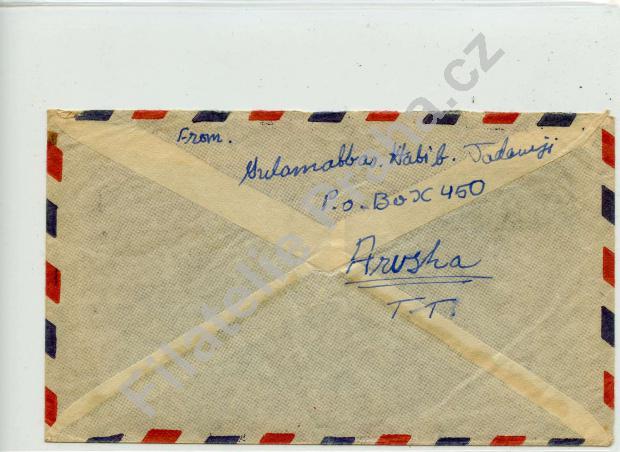 From.
Gulamabbas. Habib.
P.O. BOX 450
Arusha
T.T.
Filatelie Praha.cz